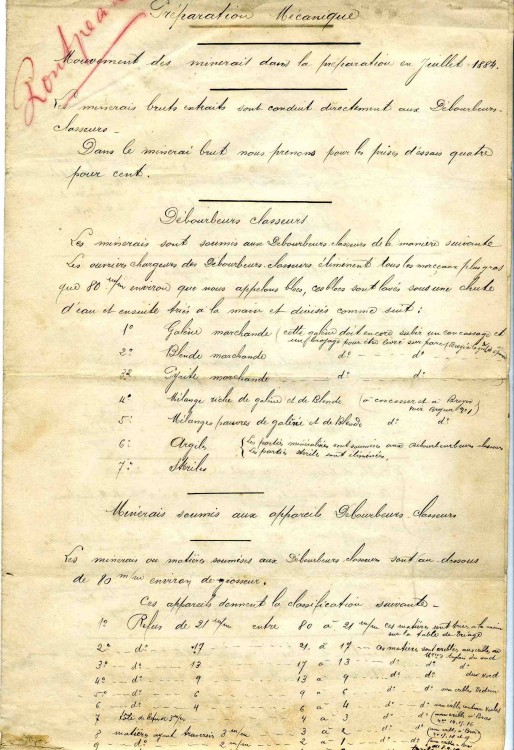 Préparation Mécanique
Pontpéan
Mouvement des minerais dans la préparation en Juillet 1884.
Les minerais bruts extraits sont conduit directement aux Débourbeurs-
classeurs -
Dans le minerai brut nous prenons pour les prises d'essais quatre
pour cent.
Débourbeurs classeurs
Les minerais sont soumis aux Débourbeurs classeurs de la manière suivante
Les ouvriers chargeurs des Débourbeurs-classeurs éliminent tous les morceaux plus gros
que 80 m/m environ que nous appelons blocs, ces blocs sont lavés sous une chute
d'eau et ensuite triés à la main et divisés comme suit :
1º Galène marchande (cette galène doit encore subir un concassage et
un broyage pour être livré
2º Blende marchande dº - - dº
3º Pyrite marchande dº dº
4º Mélange riche de galène et de Blende (à concasser et à Broyer
5º Mélanges pauvres de galène et de Blende dº dº
6º Argiles { Les parties minéralisées sont soumises aux débourbeurs classeurs
Les parties stérile sont éliminées.
7º Stériles
Minerais soumis aux appareils Débourbeurs-classeurs
Les minerais ou matières soumises aux Débourbeurs classeurs sont au-dessous
de 80 m/m environ de grosseur.
Ces appareils donnent la classification suivante -
1º Refus de 21 m/m entre 80 à 21 m/m ces matières sont triées à la main
sur la table de triage
2º - dº - 17 21 à 17 - ces matières sont
3º dº 13 17 à 13 - dº dº
4º - dº 9 13 à 9 - dº du Nord
5º - dº 6 9 à 6 - dº
6º - dº 4 6 à 4 dº
7 4 à 3 dº
8 matières ayant traversés 3 m/m 3 à 2 dº
9 - dº - 2 m/m 2 à 1 dº